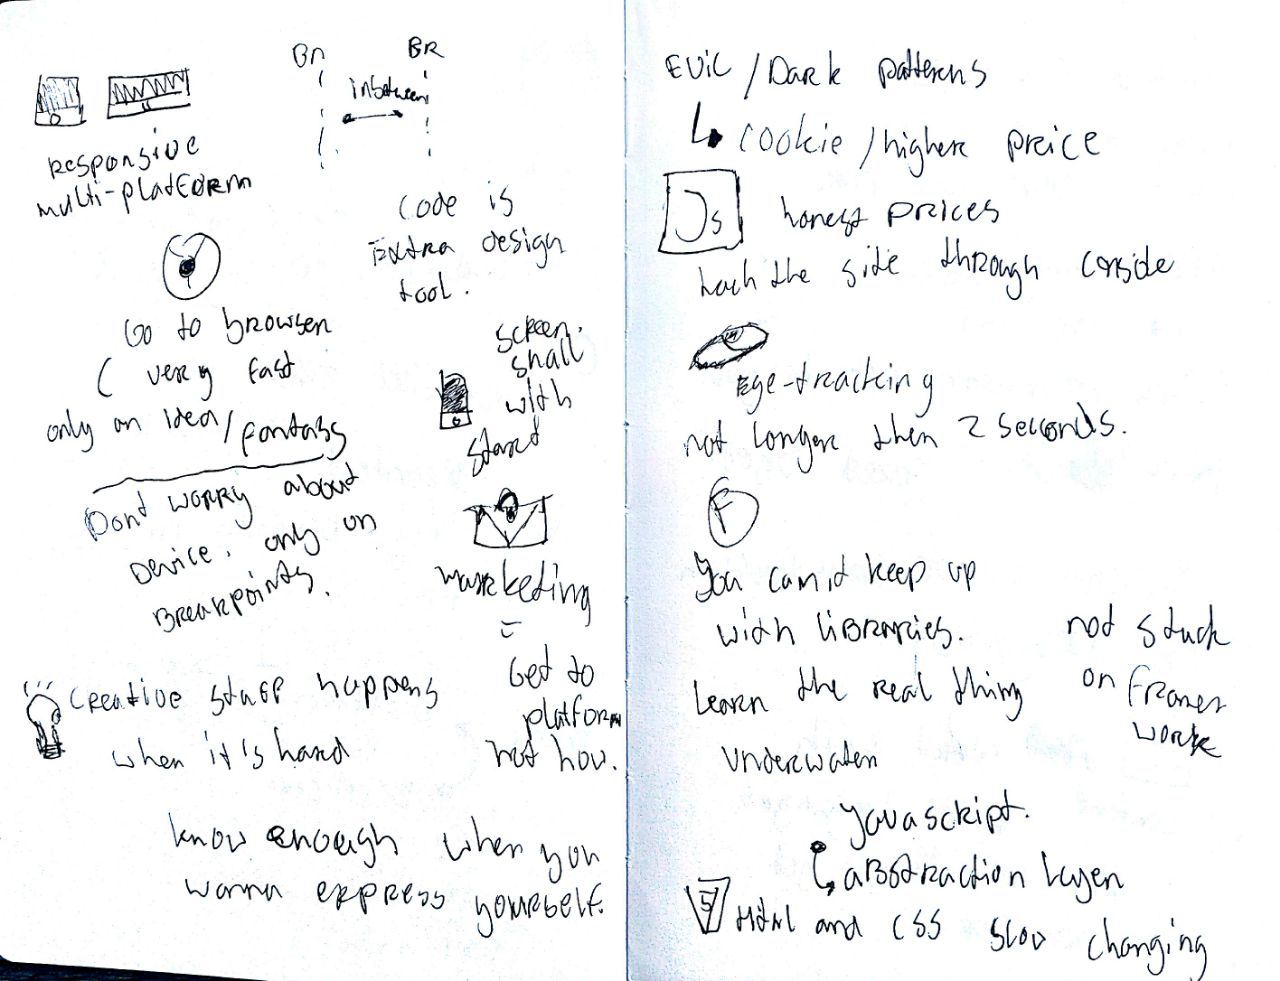 BR BR
inbetween
responsive
multi-platform
code is
Extra design
tool.
Go to browser
( very fast
only an idea/fantasy
Dont worry about
Device. only on
Breakpoints.
screen.
small
with
start
marketing
=
Get to
platform
not how.
creative stuff happens
when it's hard
know enough when you
wanna express yourself.
Evil / Dark patterns
↳ cookie / higher price
Js honest prices
hack the site through
Eye-tracking
not longer then 2 seconds.
F
You can't keep up
with libraries.
Learn the real thing
underwater
not stuck
on frames
work
yavascript.
↳ abstraction layer
5 Html and CSS slow changing